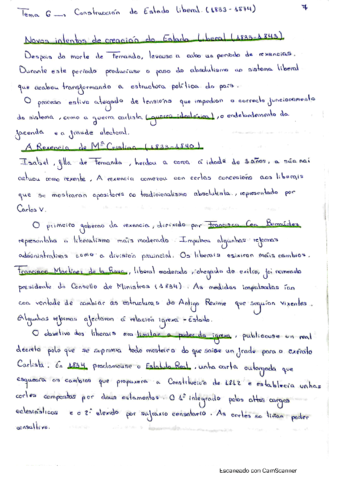 Tema 6 Construcción do Estado Liberal (1833-1874)
7
Novos intentos de creación do Estado Liberal (1833-1843)
Despois da morte de Fernando, levouse a cabo un período de rexencias.
Durante este período produciuse o paso do absolutismo ao sistema liberal
que acabou transformando a estructura política do país.
O proceso estivo cargado de tensións que impedían o correcto funcionamento
do sistema, como a guerra carlista (guerra ideolóxica), o endebedamento da
facenda e a fraude electoral.
A Rexencia de Mª Cristina (1833-1840)
Isabel, filla de Fernando, herdou a coroa á idade de 3 anos, a súa nai
actuou como rexente. A rexencia comezou con certas concesións aos liberais
que se mostraran opositores ao tradicionalismo absolutista, representado por
Carlos V.
O primeiro goberno da rexencia, dirixido por Francisco Cea Bermúdez
representaba o liberalismo máis moderado. Impuxou algunhas reformas
administrativas como a división provincial. Os liberais esixiron máis cambios.
Francisco Martínez de la Rosa, liberal moderado, chegado do exilio, foi nomeado
presidente do Consello de Ministros (1834). As medidas impulsadas ían
con vontade de cambiar as estructuras do Antigo Réxime que seguían vixentes.
Algunhas reformas afectaron á relación igrexa-Estado.
O obxetivo dos liberais era limitar o poder da igrexa, publicouse un real
decreto polo que se suprimía todo mosteiro do que saíse un frade para o exército
Carlista. En 1834 proclamouse o Estatuto Real, unha carta outorgada que
esquivara os cambios que propuxera a Constitución de 1812 e establecía unhas
cortes compostas por dous estamentos. O 1º integrado polos altos cargos
eclesiásticos e o 2º elexido por sufraxio censatario. As cortes só tiñan poder
consultivo.
Escaneado con CamScanner